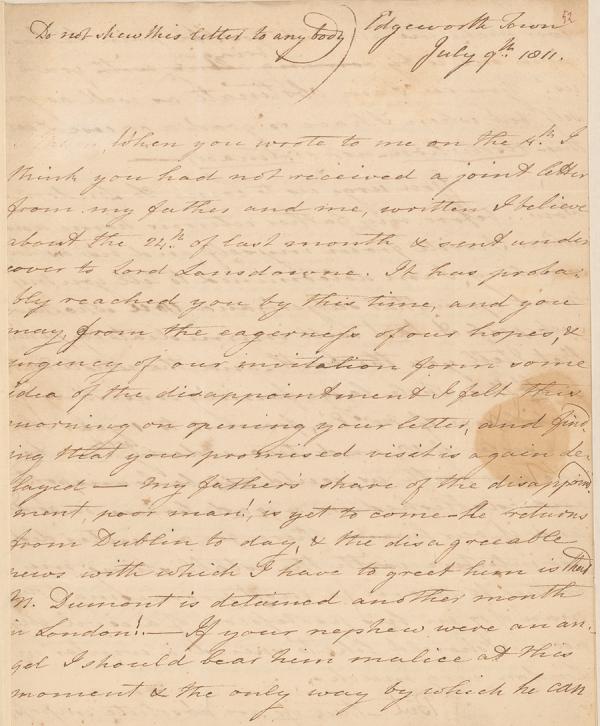 52
Do not shew this letter to any body) Edgeworth Town
July 9th. 1811.
When you wrote to me on the 4th. I
think you had not received a joint letter
from my father and me, written I believe
about the 24th. of last month & sent under
cover to Lord Lansdowne. It has proba-
bly reached you by this time, and you
may, from the eagerness of our hopes, &
urgency of our invitation form some
idea of the disappointment I felt this
morning on opening your letter, and find-
ing that your promised visit is again de-
layed — My father's share of the disappoint
ment, poor man!, is yet to come—He returns
from Dublin to day, & the disagreeable
news with which I have to greet him is that
M. Dumont is detained another month
in London! — If your nephew were an an-
gel I should bear him malice at this
moment & the only way by which he can